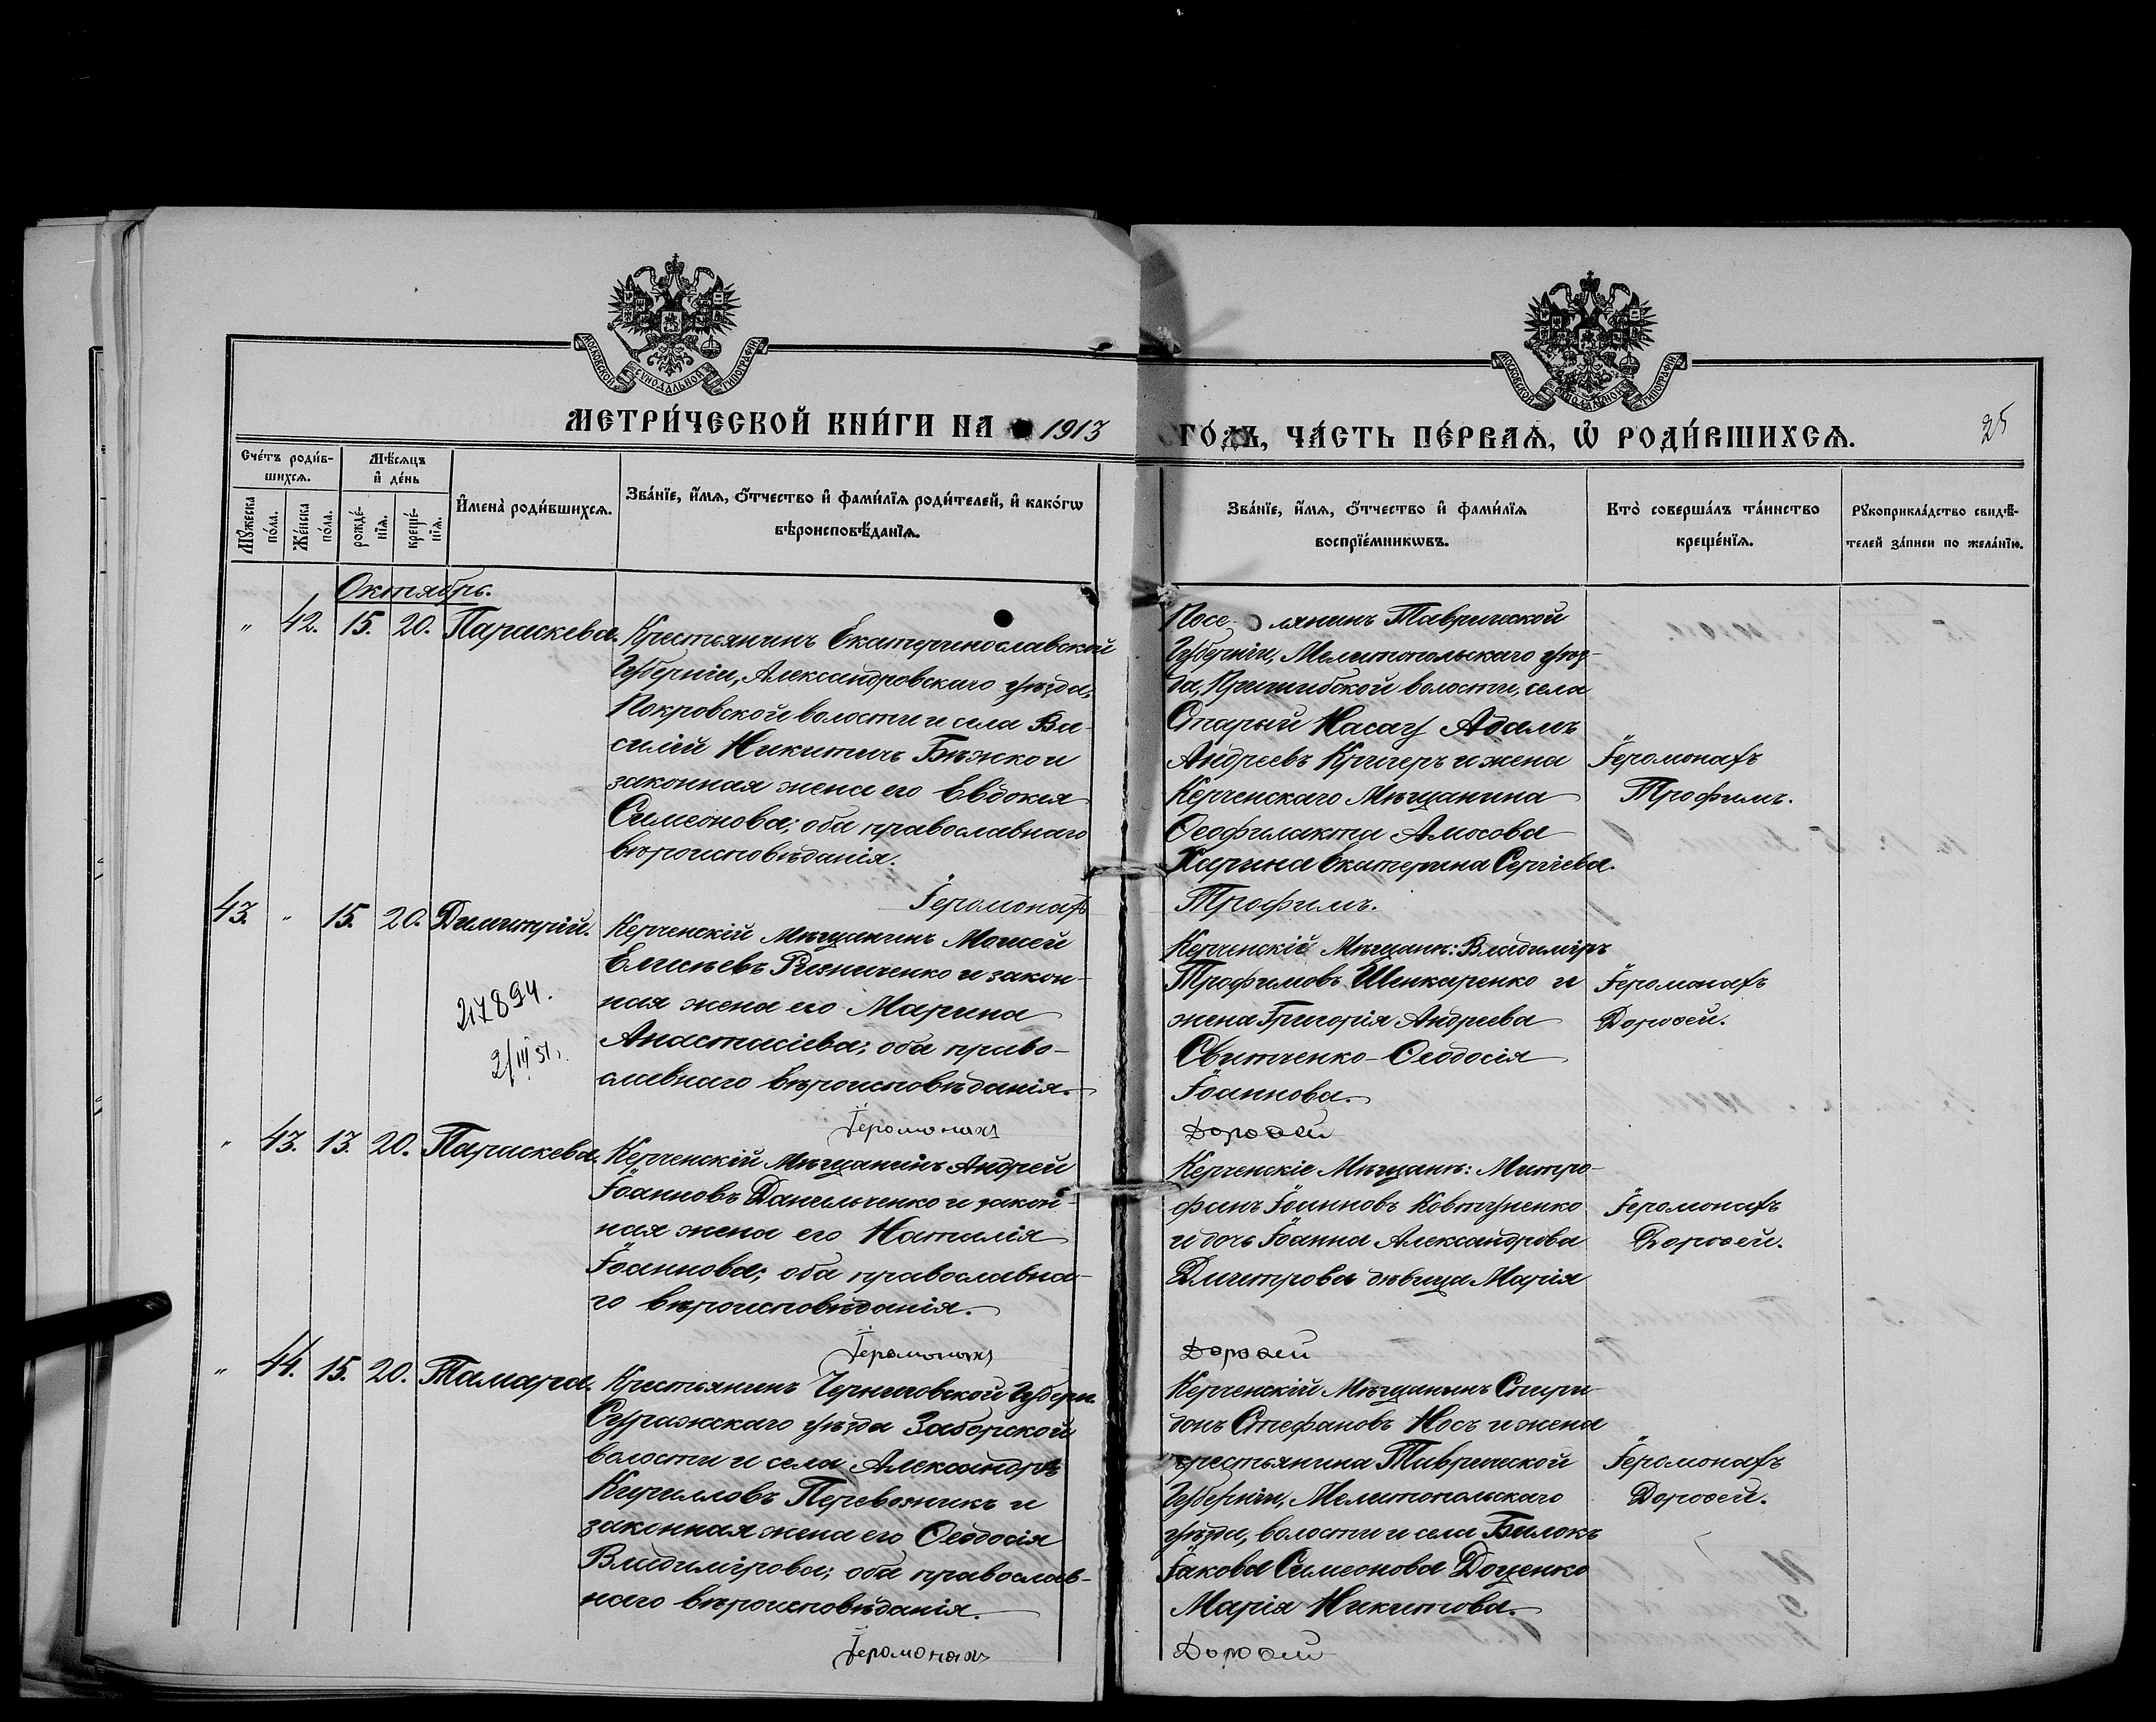 МОСКОВСКОЙ СѴНОДАЛЬНОЙ ТИПОГРАФІИ
МОСКОВСКОЙ СѴНОДАЛЬНОЙ ТИПОГРАФІИ
МЕТРИ́ЧЕСКОЙ КНИ́ГИ НА 1913 ГО́ДЪ, ЧА́СТЬ ПЕ́РВАѦ, Ѽ РОДИ́ВШИХСѦ.
25
Сче́тъ роди́в-
шихсѧ.
Мꙋ́жеска по́ла.
Же́нска по́ла.
Мѣ́сѧцъ
и҆ де́нь
рожде́-нїѧ.
креще́-нїѧ.
И҆мена̀ роди́вшихсѧ.
Зва́нїе, и҆́мѧ, ѻ҆́тчество и҆ фами́лїѧ роди́телей, и҆ како́гѡ
вѣроисповѣ́данїѧ.
Зва́нїе, и҆́мѧ, ѻ҆́тчество и҆ фами́лїѧ
воспрїе́мникѡвъ.
Кто̀ соверша́лъ та́инство
креще́нїѧ.
Рꙋкоприкла́дство свидѣ́-
телей за́писи по жела́нїю.
Октябрь.
" 42. 15. 20. Параскева.
Крестьянинъ Екатеринославской
Губерніи, Александровскаго уѣзда,
Покровской волости и села Ва-
силій Никитичъ Бѣжко и
законная жена его Евдокія
Симеонова; оба православнаго
вѣроисповѣданія.
Іеромонахъ
Посе-лянинъ Таврической
Губерніи, Мелитопольскаго уѣз-
да, Пришибской волости, села
Старый Насау Адамъ
Андреевъ Кригеръ и жена
Керченскаго Мѣщанина
Ѳеофилакта Амосова
Харина Екатерина Сергіева.
Трофимъ.
Іеромонахъ
Трофимъ.
43. " 15. 20. Димитрій.
217894.
2/III 51.
Керченскій Мѣщанинъ Моисей
Елисѣевъ Ризниченко и закон-
ная жена его Марина
Анастасіева; оба право-
славнаго вѣроисповѣданія.
Іеромонахъ
Керченскій Мѣщане: Владиміръ
Трофимовъ Шинкаренко и
жена Григорія Андреева
Свитченко Ѳеодосія
Іоаннова.
Дороѳей
Іеромонахъ
Дороѳей.
" 43. 13. 20. Параскева.
Керченскій Мѣщанинъ Андрей
Іоанновъ Данильченко и закон-
ная жена его Наталія
Іоаннова; оба православна-
го вѣроисповѣданія.
Іеромонахъ
Керченскіе Мѣщане: Митро-
фанъ Іоанновъ Ковтуненко
и дочь Іоанна Александрова
Димитрова дѣвица Марія
Дороѳей
Іеромонахъ
Дороѳей.
" 44. 15. 20. Тамара.
Крестьянинъ Черниговской Губерн.
Суражскаго уѣзда Заборской
волости и села Александръ
Кирилловъ Перевозникъ и
законная жена его Ѳеодосія
Владимірова; оба православ-
наго вѣроисповѣданія.
Іеромонахъ
Керченскій Мѣщанинъ Спири-
донъ Стефановъ Носъ и жена
крестьянина Таврической
Губерніи, Мелитопольскаго
уѣзда, волости и села Бѣлокъ
Іакова Симеонова Доценко
Марія Никитова.
Дороѳей
Іеромонахъ
Дороѳей.